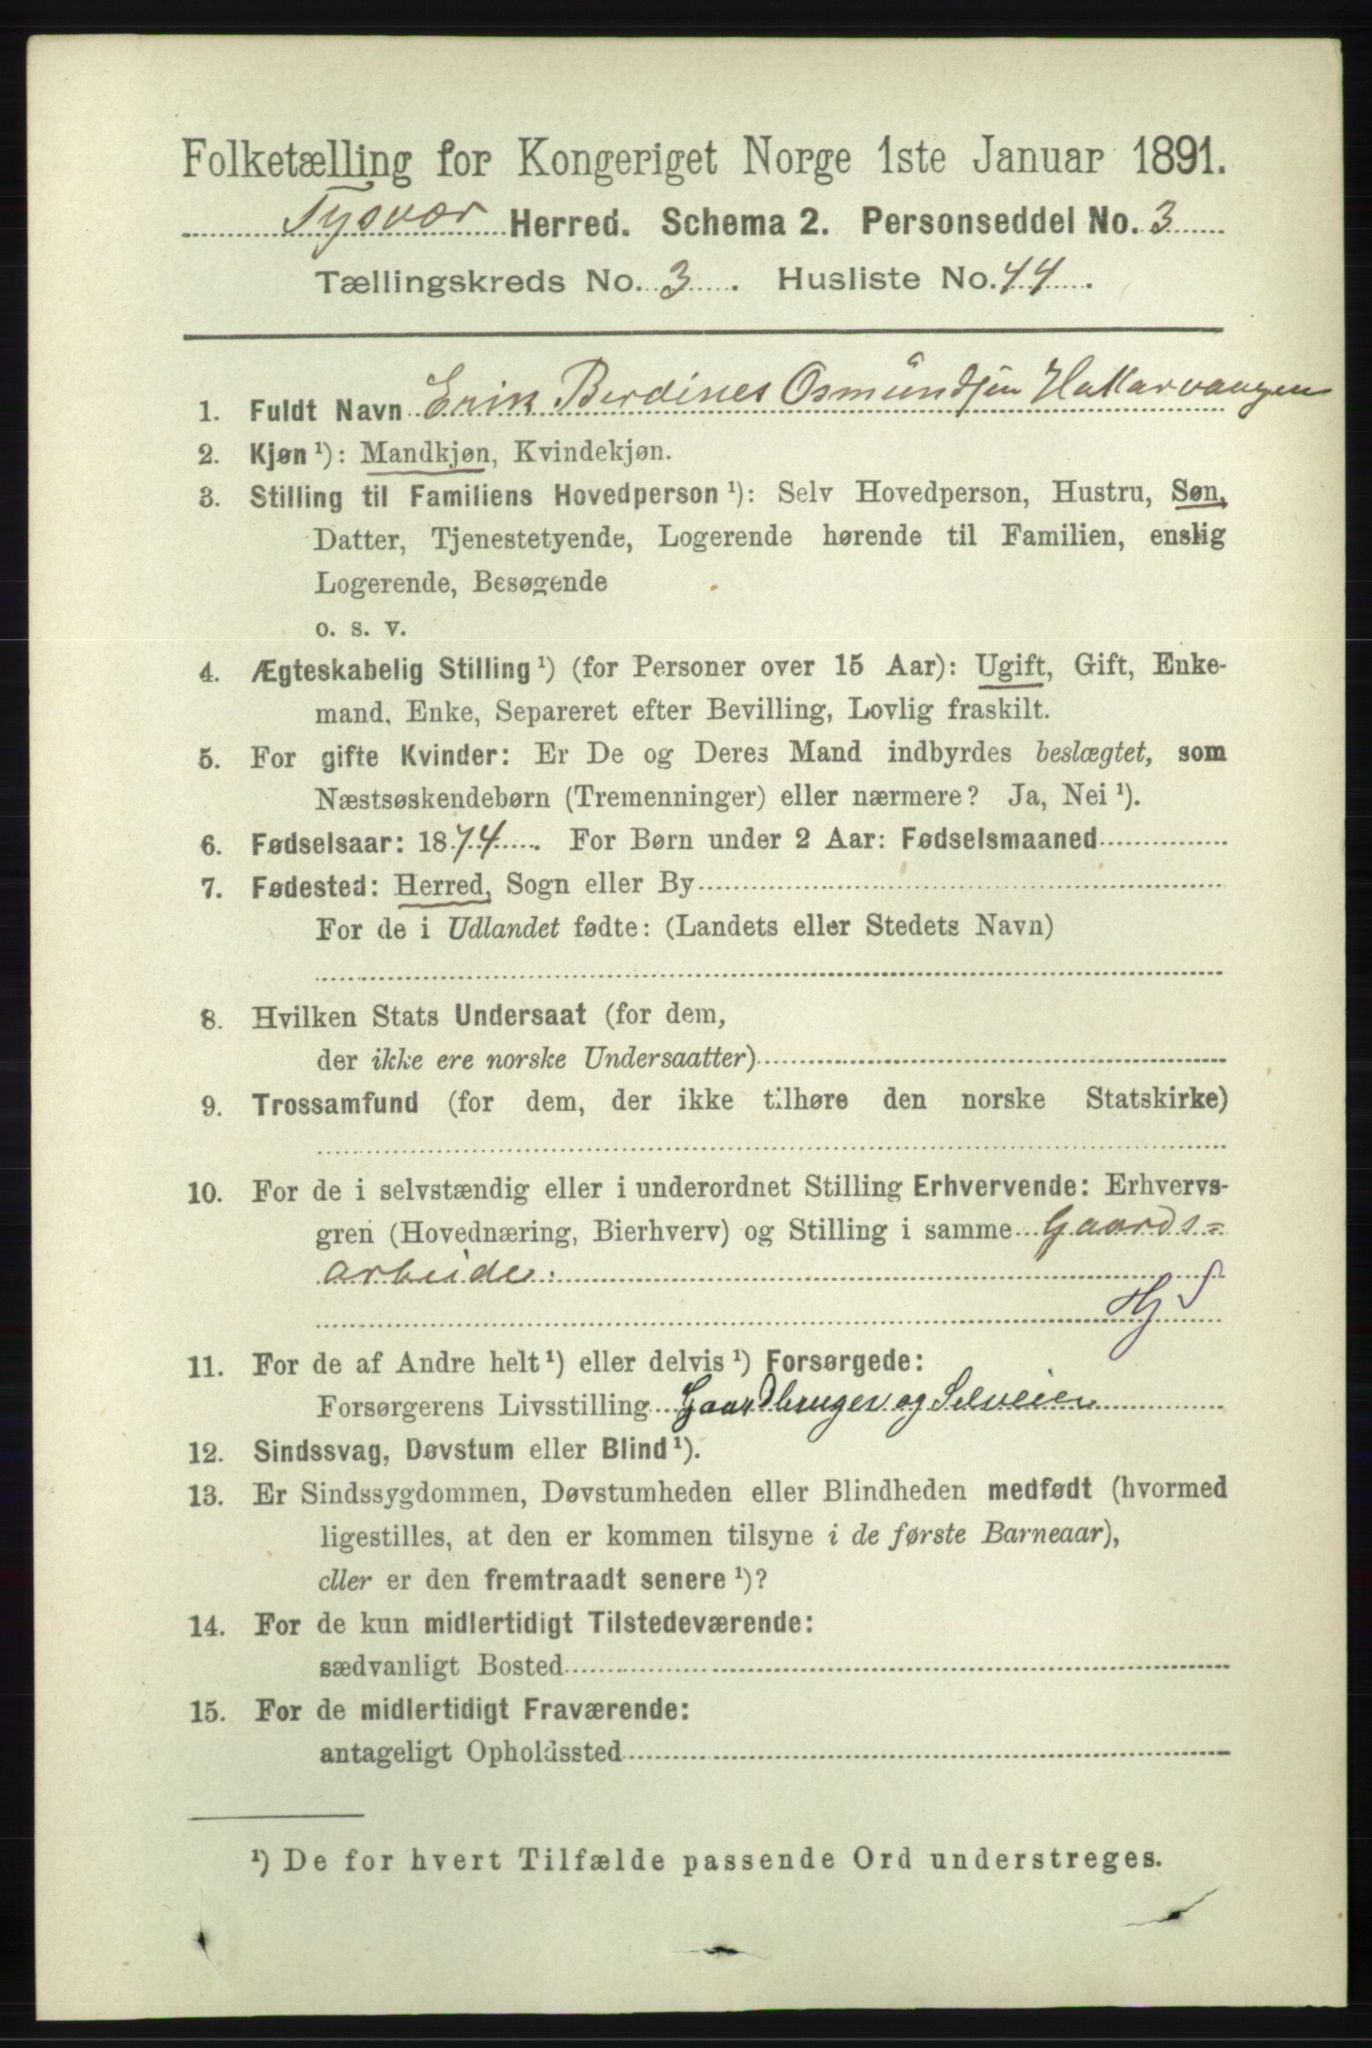 Folketælling for Kongeriget Norge 1ste Januar 1891.
Tysvær Herred. Schema 2. Personseddel No. 3
Tællingskreds No. 3. Husliste No. 44.
1. Fuldt Navn Erik Berdines Osmundsen Hallarvangen
2. Kjøn ¹): Mandkjøn, Kvindekjøn.
3. Stilling til Familiens Hovedperson ¹): Selv Hovedperson, Hustru, Søn,
Datter, Tjenestetyende, Logerende hørende til Familien, enslig
Logerende, Besøgende
o. s. v.
4. Ægteskabelig Stilling ¹) (for Personer over 15 Aar): Ugift, Gift, Enke-
mand, Enke, Separeret efter Bevilling, Lovlig fraskilt.
5. For gifte Kvinder: Er De og Deres Mand indbyrdes beslægtet, som
Næstsøskendebørn (Tremenninger) eller nærmere? Ja, Nei ¹).
6. Fødselsaar: 1874. For Børn under 2 Aar: Fødselsmaaned
7. Fødested: Herred, Sogn eller By
For de i Udlandet fødte: (Landets eller Stedets Navn)
8. Hvilken Stats Undersaat (for dem,
der ikke ere norske Undersaatter)
9. Trossamfund (for dem, der ikke tilhøre den norske Statskirke)
10. For de i selvstændig eller i underordnet Stilling Erhvervende: Erhvervs-
gren (Hovednæring, Bierhverv) og Stilling i samme Gaards=
arbeide.
Hj S
11. For de af Andre helt ¹) eller delvis ¹) Forsørgede:
Forsørgerens Livsstilling Gaardbruger og Selveier
12. Sindssvag, Døvstum eller Blind ¹).
13. Er Sindssygdommen, Døvstumheden eller Blindheden medfødt (hvormed
ligestilles, at den er kommen tilsyne i de første Barneaar),
eller er den fremtraadt senere ¹)?
14. For de kun midlertidigt Tilstedeværende:
sædvanligt Bosted
15. For de midlertidigt Fraværende:
antageligt Opholdssted
¹) De for hvert Tilfælde passende Ord understreges.